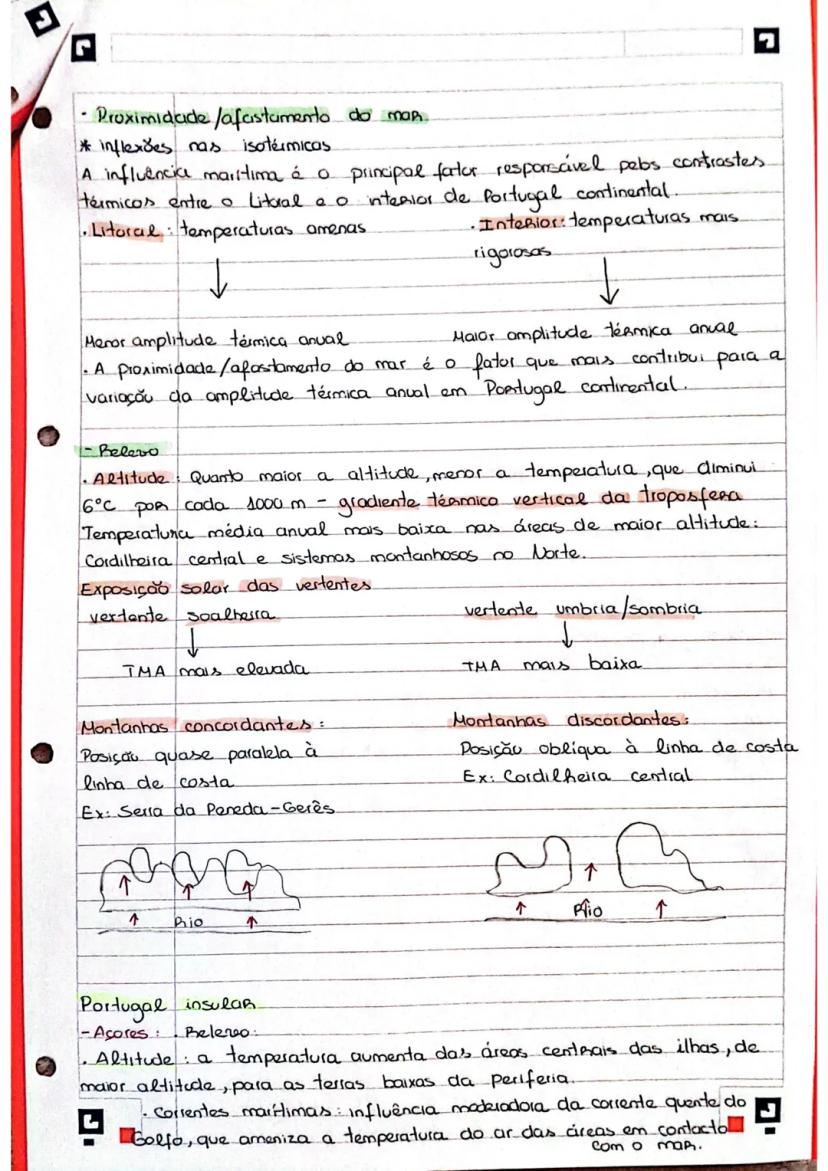 - Proximidade/afastamento do mar
* inflexões nas isotérmicas
A influência marítima é o principal fator responsável pelos contrastes
térmicos entre o Litoral e o interior de Portugal continental.
. Litoral : temperaturas amenas
. Interior: temperaturas mais
rigorosas
Menor amplitude térmica anual
Maior amplitude térmica anual
. A proximidade/afastamento do mar é o fator que mais contribui para a
variação da amplitude térmica anual em Portugal continental.
- Relevo
. Altitude : Quanto maior a altitude, menor a temperatura, que diminui
6°C por cada 1000 m - gradiente térmico vertical da troposfera
Temperatura média anual mais baixa nas áreas de maior altitude:
Cordilheira central e sistemas montanhosos no Norte.
Exposição solar das vertentes
vertente soalheira
vertente umbria/sombria
TMA mais elevada
TMA mais baixa
Montanhas concordantes :
Posição quase paralela à
linha de costa
Ex: Serra da Peneda-Gerês
Montanhas discordantes:
Posição oblíqua à linha de costa
Ex: Cordilheira central
Rio
Rio
Portugal insular
- Açores : . Relevo:
. Altitude : a temperatura aumenta das áreas centrais das ilhas, de
maior altitude, para as terras baixas da periferia.
. Correntes marítimas : influência moderadora da corrente quente do
Golfo, que ameniza a temperatura do ar das áreas em contacto
com o mar.